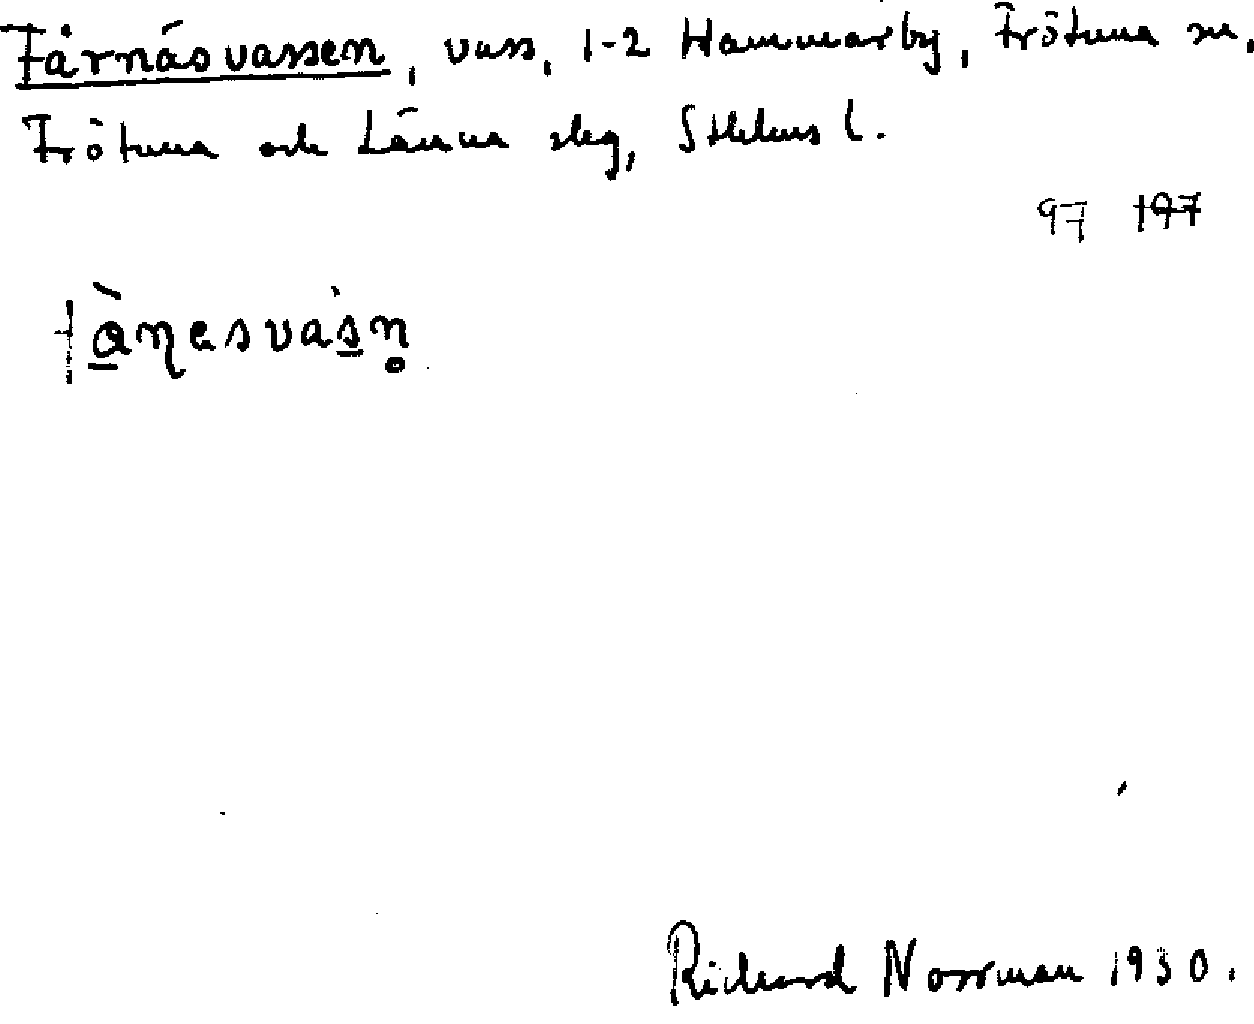 Fårnäsvassen, vass, 1-2 Hammarby, Frötuna sn,
Frötuna och Länna slg, Sthlms l.
97 197
Richard Norrman 1930.